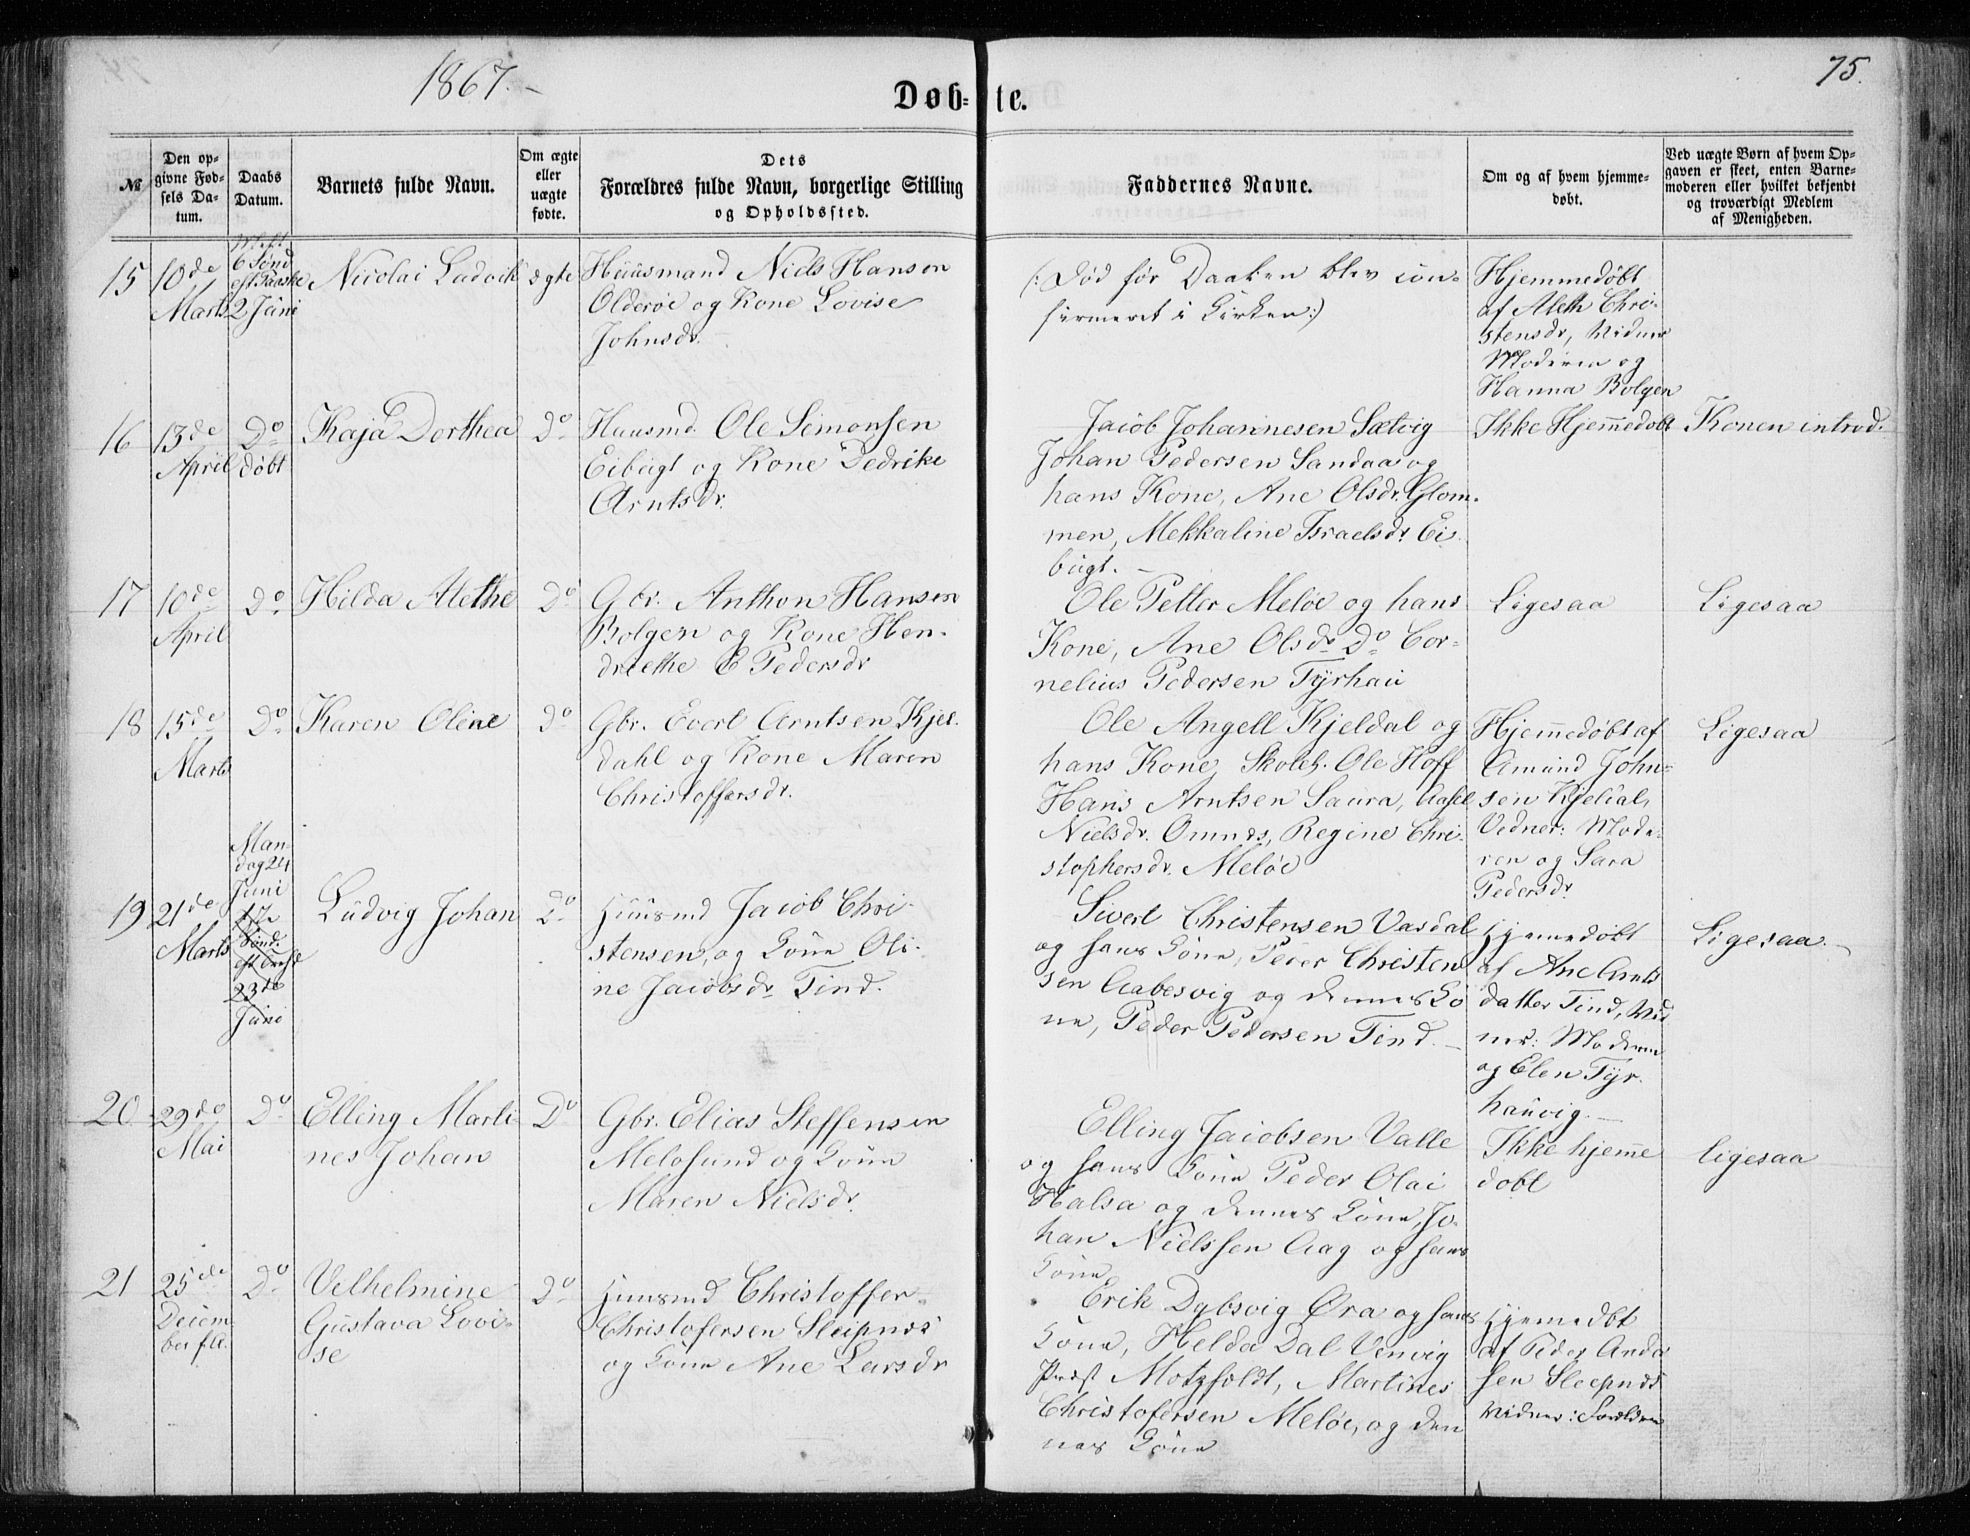 1867.-
75.
Døb-te.
№
Den op-
givne Fød-
sels Da-
tum.
Daabs
Datum.
Barnets fulde Navn.
Om ægte
eller
uægte
fødte.
Dets
Forældres fulde Navn, borgerlige Stilling
og Opholdssted.
Faddernes Navne.
Om og af hvem hjemme-
døbt.
Ved uægte Børn af hvem Op-
gaven er skeet, enten Barne-
moderen eller hvilket bekjendt
og troværdigt Medlem
af Menigheden.
15
10de
Marts
6 Sønd
eft Paaske
2 Juni
Nicolai Ludvik
ægte
Huusmand Niels Hansen
Olderøe og Kone Lovise
Johnsdr.
(: Død før Daaben blev con-
firmeret i Kirken:)
Hjemmedøbt
af Aleth Chri-
stensdr, Vidner
Moderen og
Hanna Bolgen
16
13de
April
Do
døbt
Kaja Dorthea
Do
Huusmd. Ole Simonsen
Eibugt og Kone Dedrike
Arntsdr.
Jacob Johannesen Sætvig
Johan Pedersen Sandaa og
hans Kone, Ane Olsdr. Glom-
men, Mekkaline Israelsdr. Ei-
bugt. -
Ikke Hjemmedøbt
Konen introd.
17
10de
April
Do
Hilda Alethe
Do
Gbr. Anthon Hansen
Bolgen og Kone Hen-
driethe E Pedersdr
Ole Petter Meløe og hans
Kone, Ane Olsdr Do Cor-
nelius Pedersen Tyrhau
Ligesaa
Ligesaa
18
15de
Marts
Do
Karen Oline
Do
Gbr. Evert Arntsen Kjel-
dahl og Kone Maren
Christoffersdr.
Ole Angell Kjeldal og
hans Kone, Skoleh. Ole Hoff
Hans Arntsen Saura, Aasel
Nielsdr. Ornnes, Regine Chri-
stophersdr. Meløe
Hjemmedøbt af
Amund John-
sen Kjeldal,
Vedner: Mode-
ren og Sara
Pedersdr.
Ligesaa
19
21de
Marts
Man-
dag 24
Juni
Sønd.
23de
Juni
Ludvig Johan
Do
Huusmd Jacob Chri-
stensen, og Kone Oli-
ne Jacobsdr Tind.
Sivert Christensen Vasdal
og hans Kone, Peder Christen
sen Aabesvig og dennes Ko
ne, Peder Pedersen Tind. -
Hjemedøbt
af Ane Arnts
datter Tind, Vid
ner: Moderen
og Elen Tyr-
hauvig. -
Ligesaa. -
20
29de
Mai
Do
Elling Marti-
nes Johan
Do
Gbr. Elias Steffensen
Meløsund og Kone
Maren Nielsdr.
Elling Jacobsen Valle
og hans Kone Peder Olai
Halsa og dennes Kone, Jo-
han Nielssen Aag og hans
Kone
Ikke hjemme
døbt
ligesaa
21
25de
Decem
ber f.A.
Do
Velhelmine
Gustava Lovi-
se
Do
Huusmd Christoffer
Christofersen Sleipnes
og Kone Ane Larsdr
Erik Dybsvig Øra og hans
Kone, Helda Dal Venvig
Præst Motzfeldt, Martines
Christofersen Meløe, og den
nes Kone
Hjemedøbt
af Peder Ander
sen Sleipnes
Vidner: Forældrene